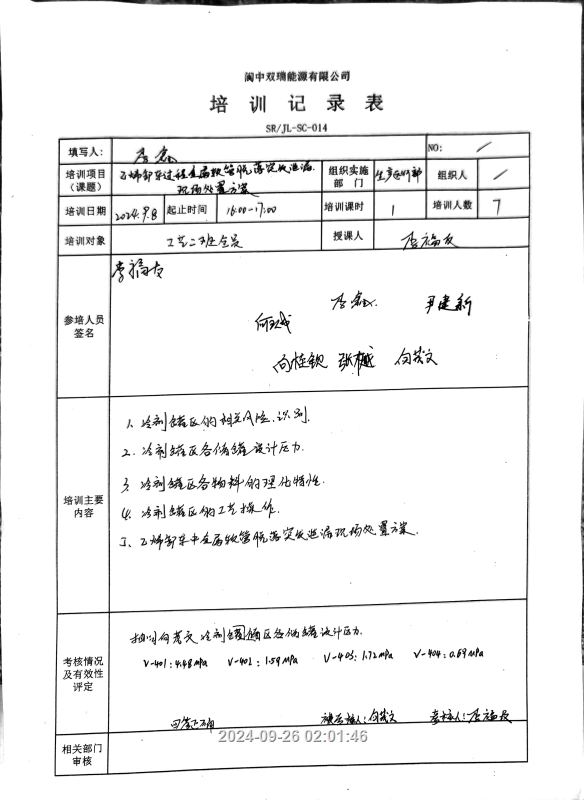 阆中双瑞能源有限公司
培训记录表
SR/JL-SC-014
填写人： 李磊 NO： /
培训项目（课题） 乙烯卸车过程金属软管脱落突发泄漏现场处置方案 组织实施部门 生产运行部 组织人 /
培训日期 2024.9.8 起止时间 16:00-17:00 培训课时 1 培训人数 7
培训对象 工艺二班全员 授课人 李福友
参培人员签名
李福友
李磊 尹建新
向桂钦 张樾 向茂文
培训主要内容
1、冷剂罐区的相关风险识别.
2、冷剂罐区各储罐设计压力.
3、冷剂罐区各物料的理化特性.
4、冷剂罐区的工艺操作.
5、乙烯卸车中金属软管脱落突发泄漏现场处置方案.
考核情况及有效性评定
抽问向茂文冷剂罐区各储罐设计压力.
V-401：4.48MPa V-402：1.59MPa V-403：1.72MPa V-404：0.69MPa
回答正确 被考核人：向茂文 考核人：李福友
2024-09-26 02:01:46
相关部门审核